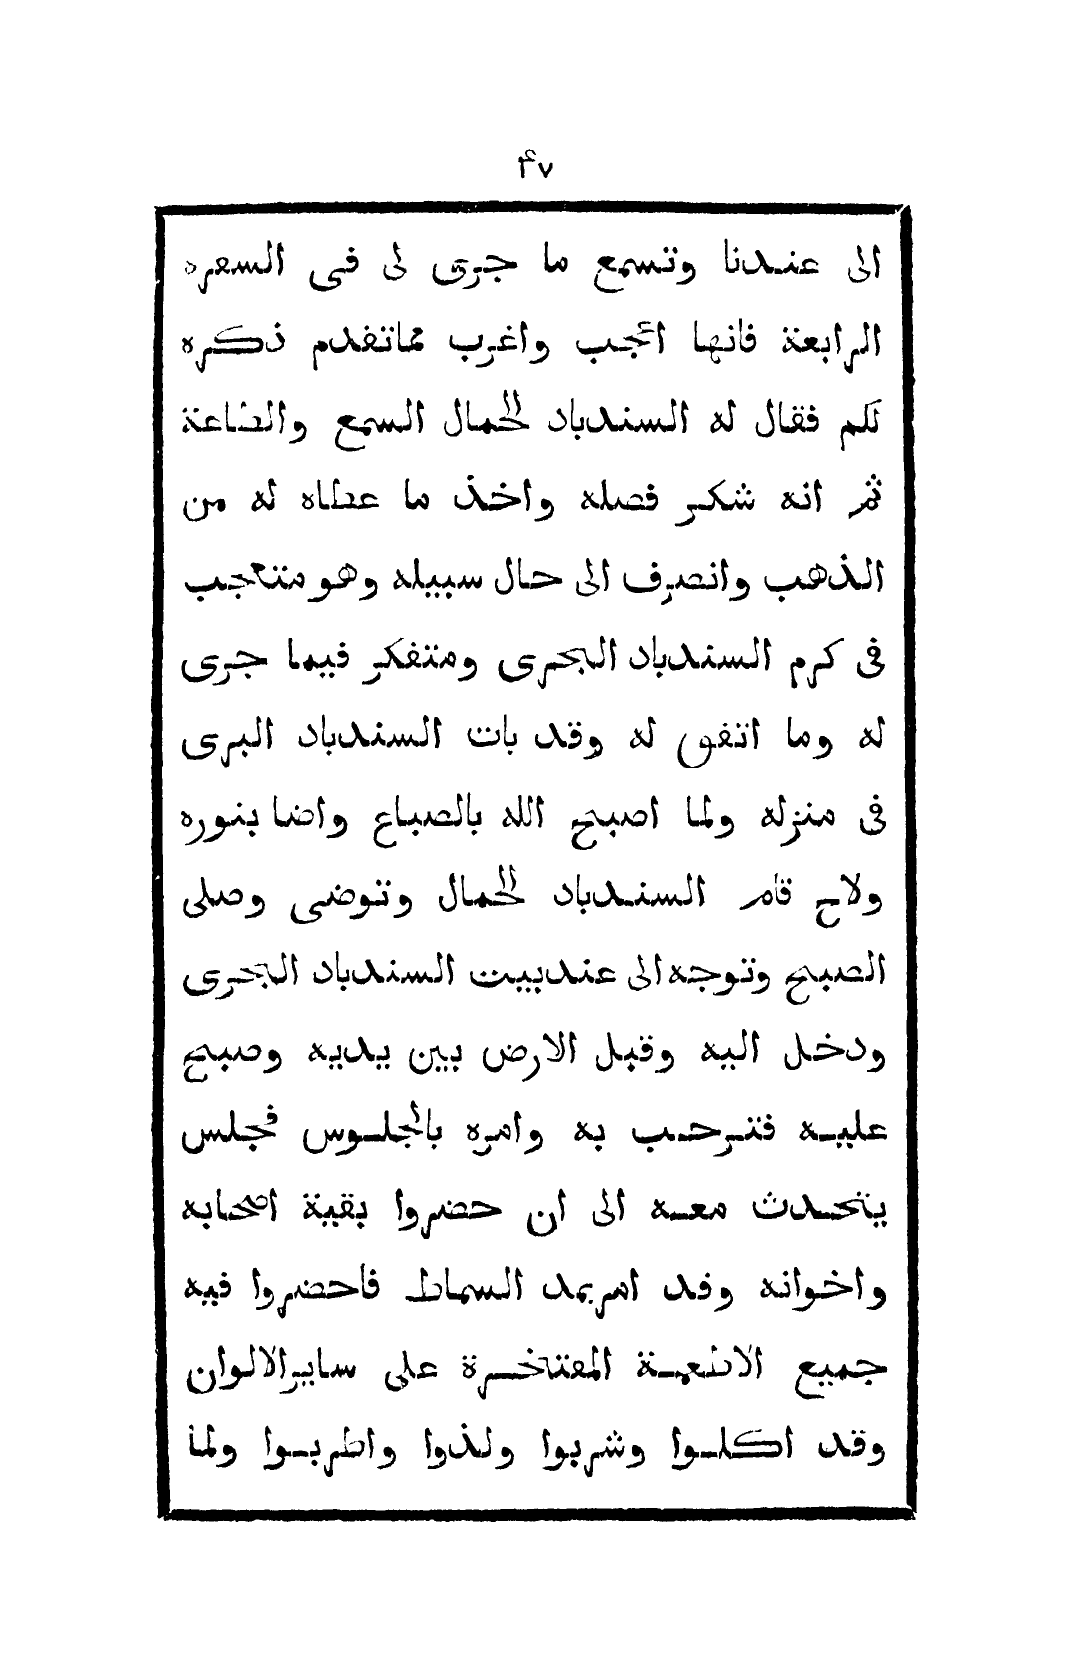 ۴۷
الى عندنا وتسمع ما جرى لى فى السفره
الرابعة فانها اعجب واغرب مماتقدم ذكره
لكم فقال له السندباد الحمال السمع والطاعة
ثم انه شكر فضله واخذ ما عطاه له من
الذهب وانصرف الى حال سبيله وهو متعجب
فى كرم السندباد البحرى ومتفكر فيما جرى
له وما اتفق له وقد بات السندباد البرى
فى منزله ولما اصبح الله بالصباح واضا بنوره
ولاح قام السندباد الحمال وتوضى وصلى
الصبح وتوجه الى عندبيت السندباد البحرى
ودخل اليه وقبل الارض بين يديه وصبح
عليه فترحب به وامره بالجلوس فجلس
يتحدث معه الى ان حضروا بقية اصحابه
واخوانه وقد امربمد السماط فاحضروا فيه
جميع الاطعمة المفتخرة على سايرالالوان
وقد اكلوا وشربوا ولذوا واطربوا ولما